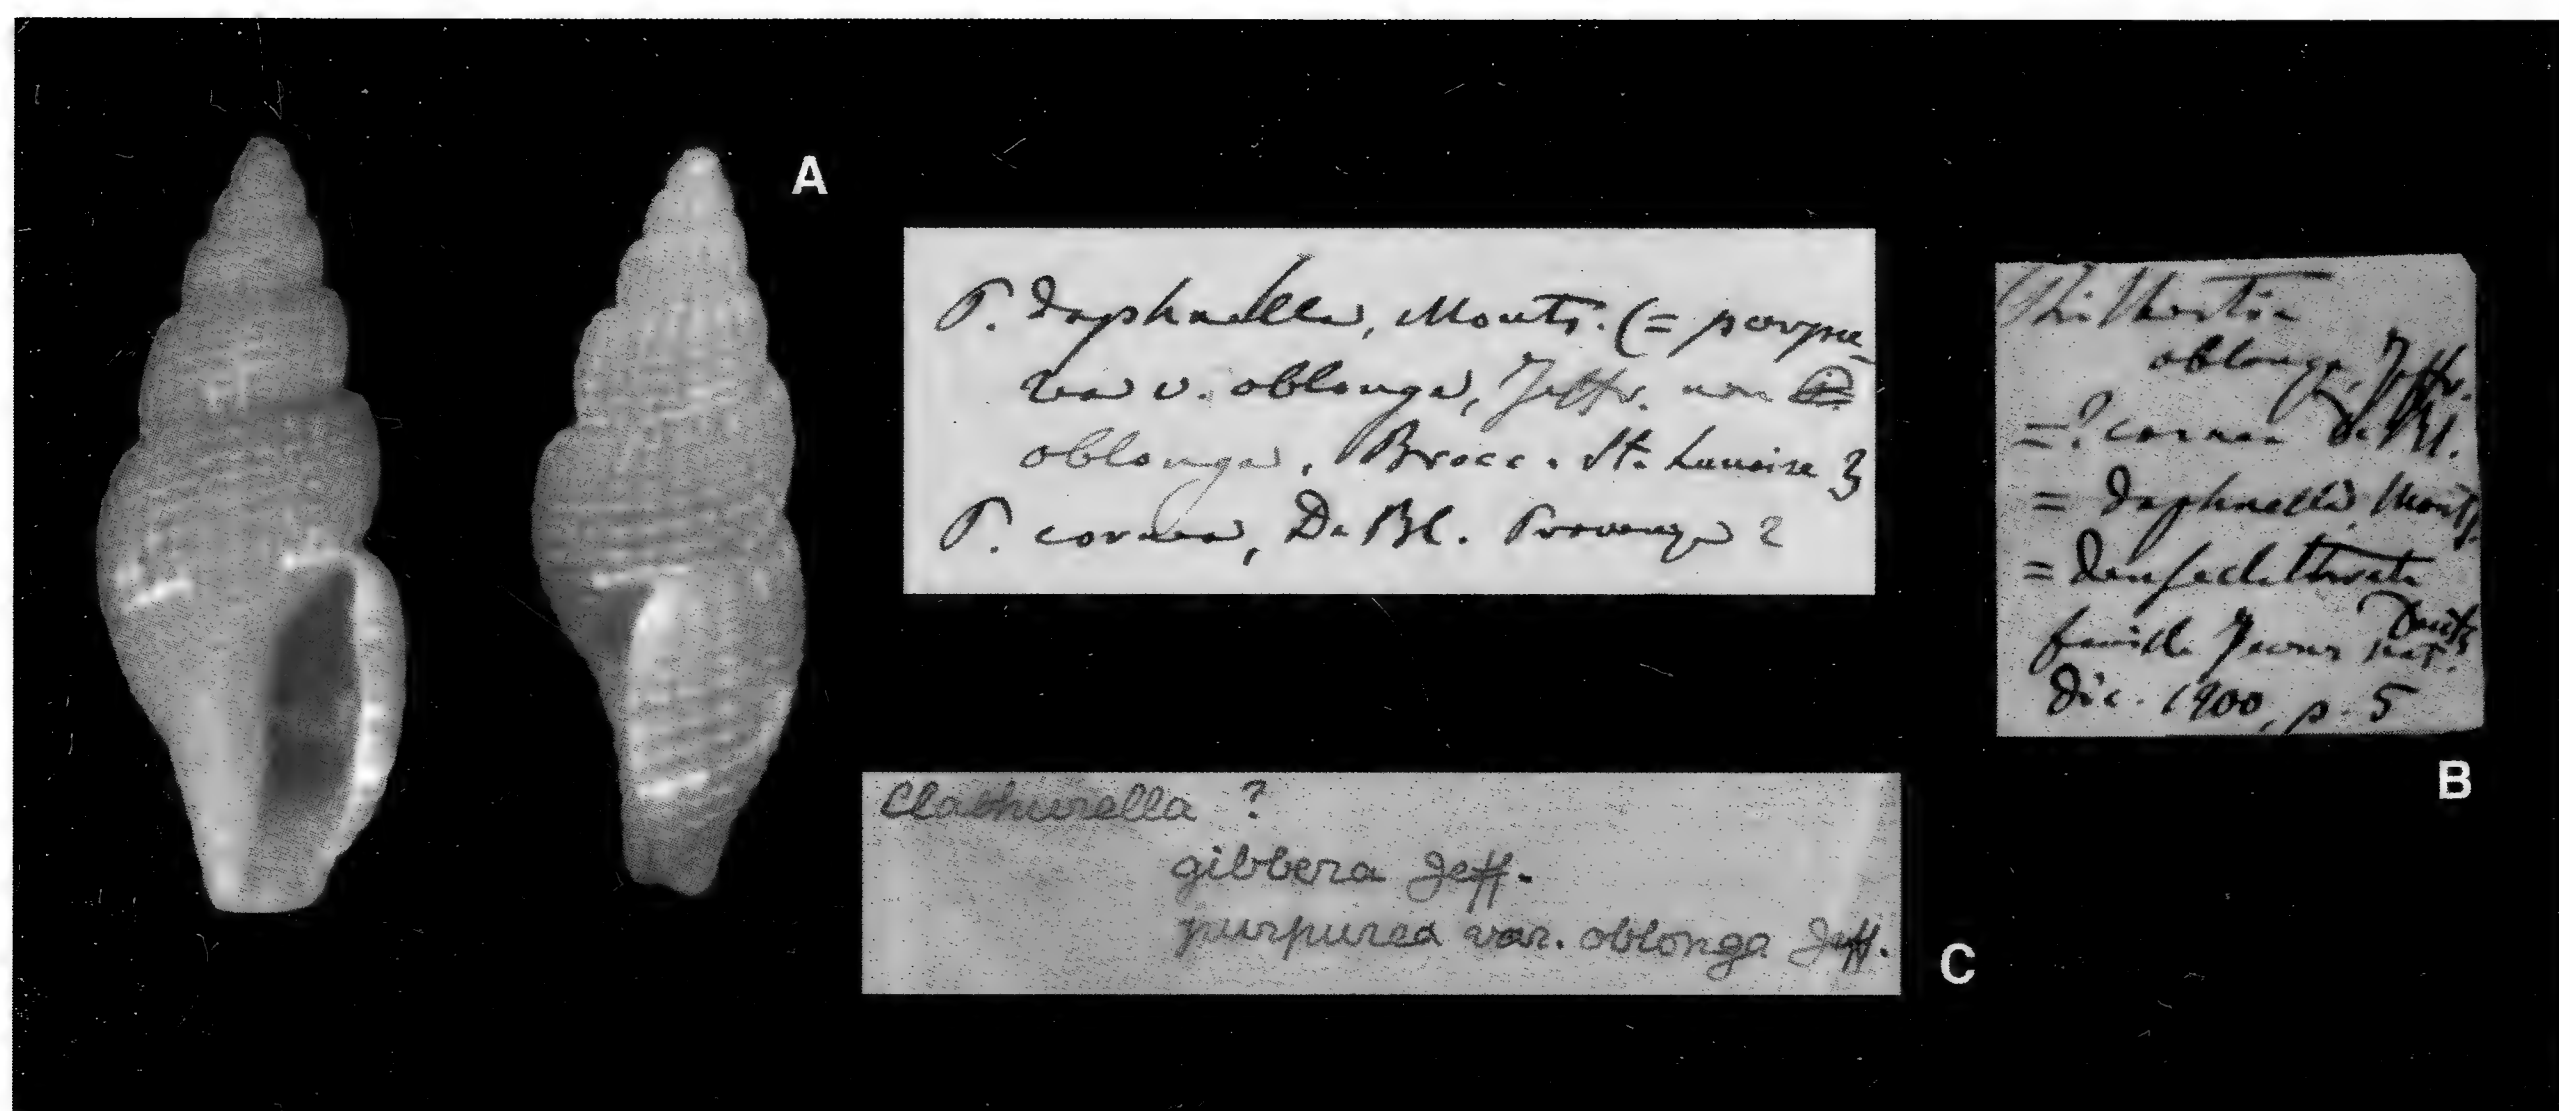 A
P. Daphnella, Monts. (= purpu-
rea v. oblonga, Jeffr. non
oblonga, Brocc. St. Lunaire 3
P. cornea, De Bl. Provence 2
Philbertia
oblonga, Jeffr.
=? cornea De Bl.
= Daphnella, Monts.
= Dautz
feuille Jeunes nat.
Dec. 1900, p. 5
B
Clathurella ?
gibbera Jeff.
purpurea var. oblonga Jeff.
C